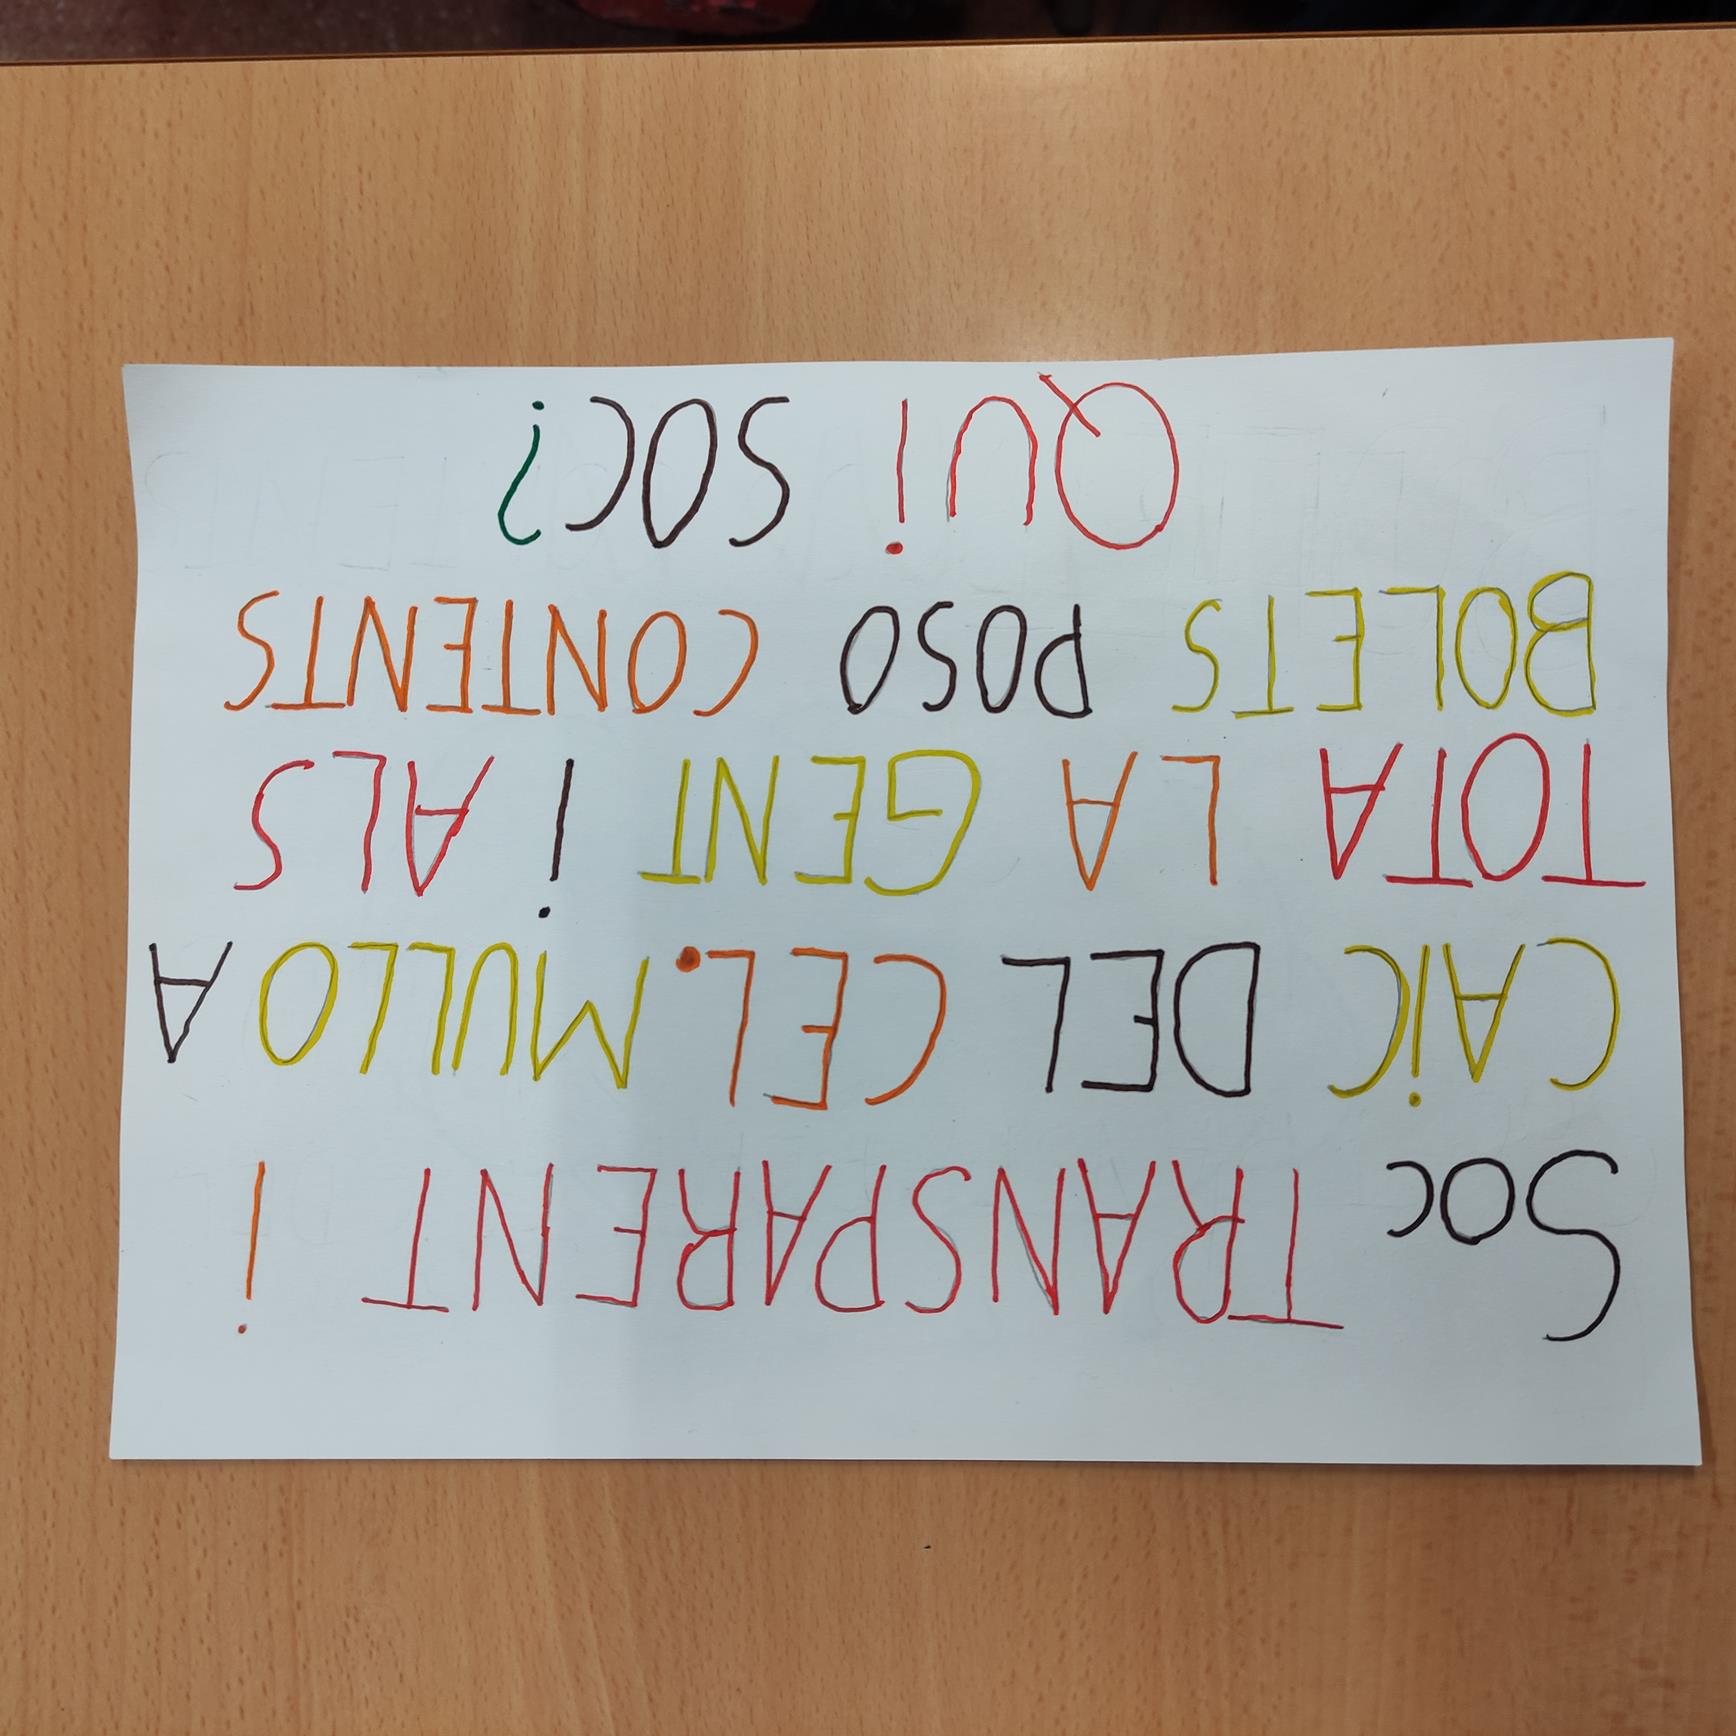 Soc TRANSPARENT i
CAiC DEL CEL. MULLO A
TOTA LA GENT i ALS
BOLETS POSO CONTENTS
QUi SOC?